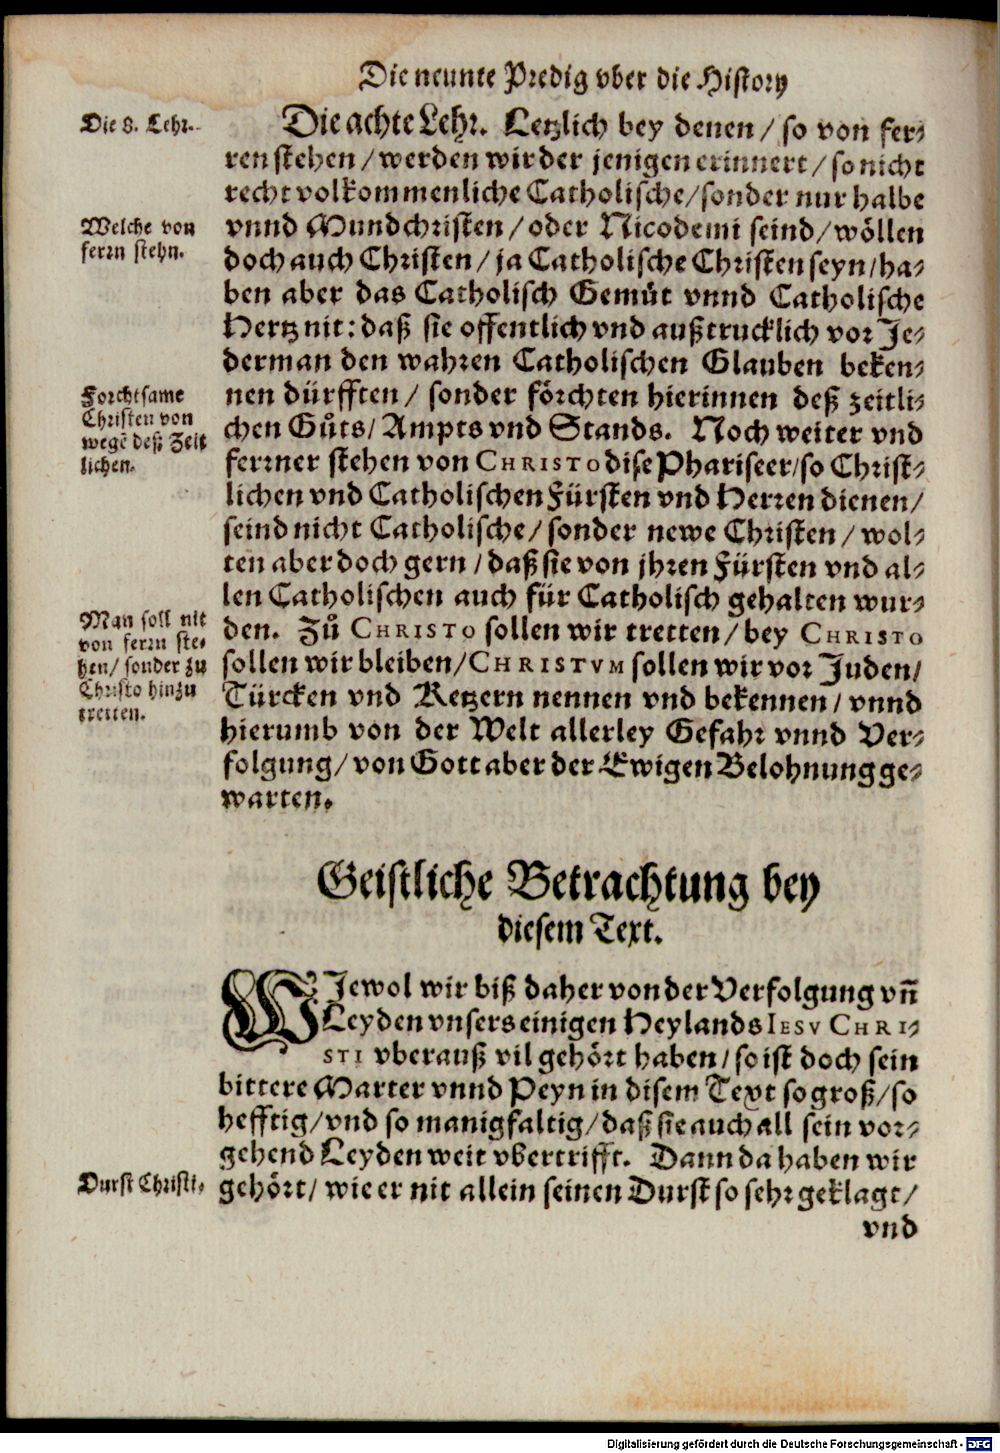 Die neunte Predig vber die History
Die 8. Lehr.
Die achte Lehr. Letzlich bey denen / so von fer⸗
ren stehen / werden wir der jenigen erinnert / so nicht
recht volkommenliche Catholische / sonder nur halbe
Welche von
ferrn stehn.
vnnd Mundchristen / oder Nicodemi seind / wöllen
doch auch Christen / ja Catholische Christen seyn / ha⸗
ben aber das Catholisch Gemüt vnnd Catholische
Hertz nit: daß sie offentlich vnd außtrucklich vor Je⸗
derman den wahren Catholischen Glauben beken⸗
Forchtsame
Christen von
wegẽ deß Zeit
lichen.
nen dürfften / sonder förchten hierinnen deß zeitli⸗
chen Gůts / Ampts vnd Stands. Noch weiter vnd
ferrner stehen von CHRISTO dise Phariseer / so Christ⸗
lichen vnd Catholischen Fürsten vnd Herren dienen /
seind nicht Catholische / sonder newe Christen / wol⸗
ten aber doch gern / daß sie von jhren Fürsten vnd al⸗
len Catholischen auch für Catholisch gehalten wur⸗
Man soll nit
von ferrn ste⸗
hen / sonder zu
Christo hinzu
tretten.
den. Zů CHRISTO sollen wir tretten / bey CHRISTO
sollen wir bleiben / CHRISTVM sollen wir vor Juden /
Türcken vnd Ketzern nennen vnd bekennen / vnnd
hierumb von der Welt allerley Gefahr vnnd Ver⸗
folgung / von Gott aber der Ewigen Belohnung ge⸗
warten.
Geistliche Betrachtung bey
diesem Text.
WJewol wir biß daher von der Verfolgung vñ
Leyden vnsers einigen Heylands IESV CHRI⸗
STI vberauß vil gehört haben / so ist doch sein
bittere Marter vnnd Peyn in disem Text so groß / so
hefftig / vnd so manigfaltig / daß sie auch all sein vor⸗
gehend Leyden weit vbertrifft. Dann da haben wir
Durst Christi.
gehört / wie er nit allein seinen Durst so sehr geklagt /
vnd
Digitalisierung gefördert durch die Deutsche Forschungsgemeinschaft - DFG